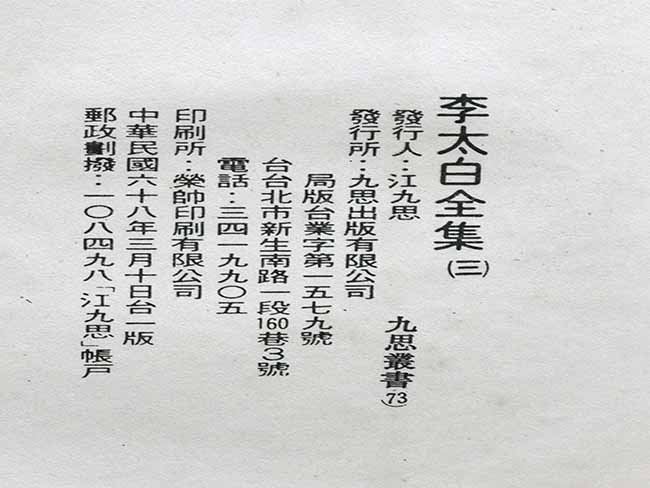 李太白全集(三)
九思叢書(73)
發行人：江九思
發行所：九思出版有限公司
局版台業字第一五七九號
台台北市新生南路一段160巷3號
電話：三四一九九〇五
印刷所：榮帥印刷有限公司
中華民國六十八年三月十日台一版
郵政劃撥：一〇八四九八「江九思」帳戶